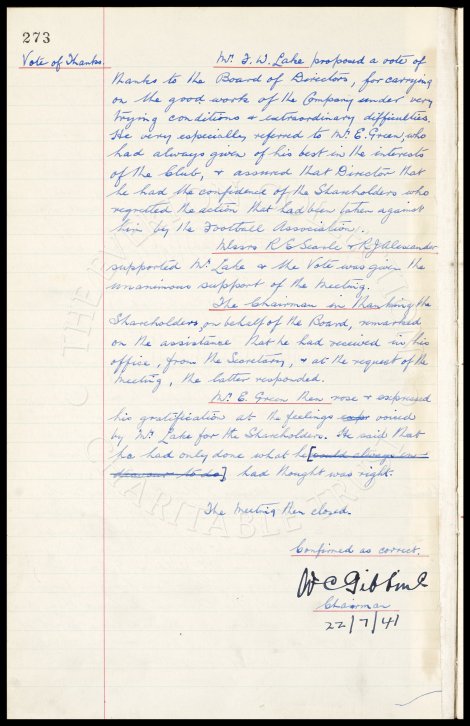 273
Vote of Thanks.
Mr. F. W. Lake proposed a vote of
thanks to the Board of Directors, for carrying
on the good work of the Company under very
trying conditions & extraordinary difficulties.
He very especially referred to Mr. E. Green, who
had always given of his best in the interests
of the Club, & assured that Director that
he had the confidence of the Shareholders who
regretted the action that had been taken against
him by the Football Association.
Messrs R E Searle & R J Alexander
supported Mr. Lake & the Vote was given the
unanimous support of the meeting.
The Chairman in thanking the
Shareholders, on behalf of the Board, remarked
on the assistance that he had received in his
office, from the Secretary, & at the request of the
meeting, the latter responded.
Mr. E. Green then rose & expressed
his gratification at the feelings voiced
by Mr. Lake for the Shareholders. He said that
he had only done what he [could always en-
deavour to do] had thought was right.
The Meeting then closed.
Confirmed as correct.
Chairman
22/7/41